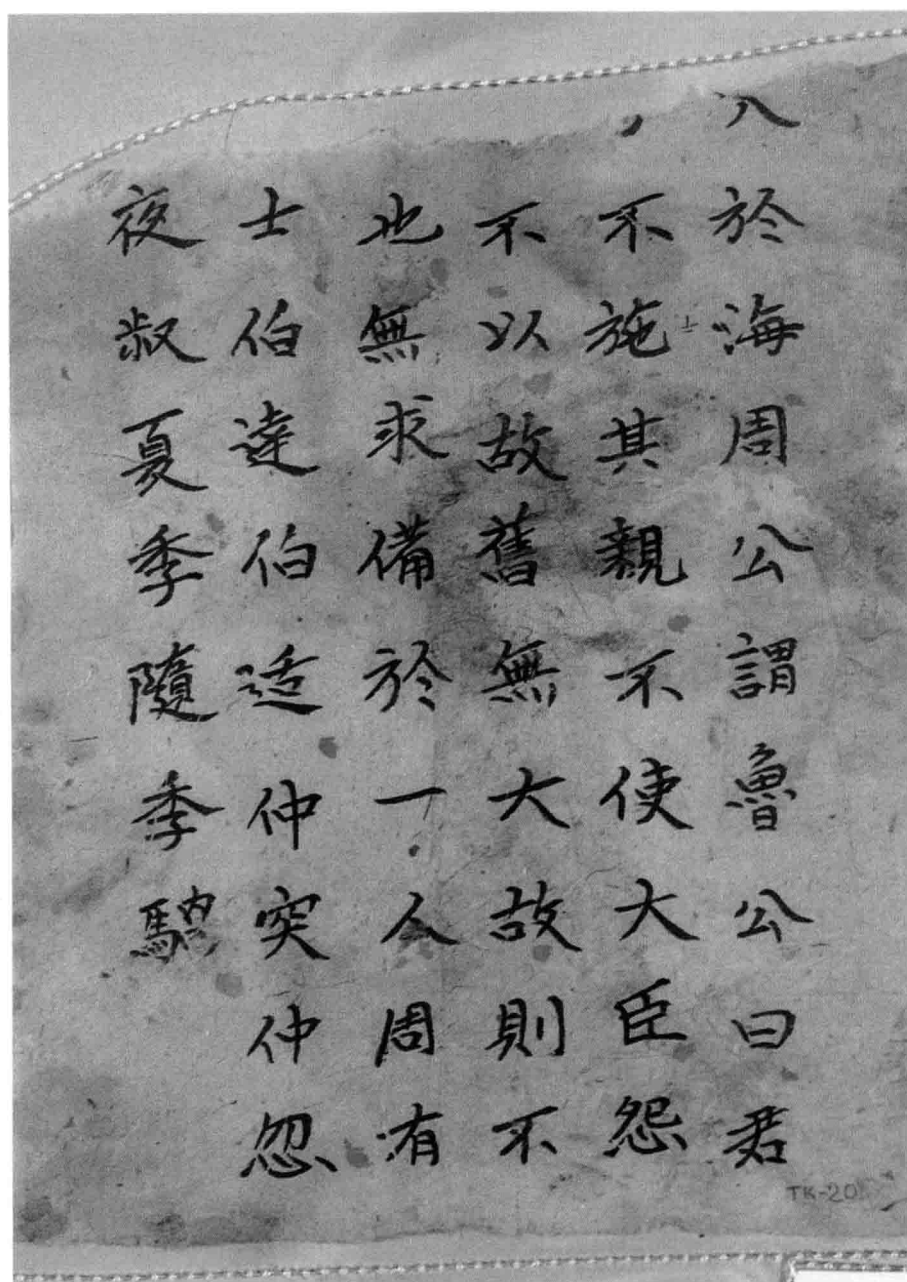 入於海周公謂魯公曰君
不施其親不使大臣怨
不以故舊無大故則不
也無求備於一人周有
士伯達伯适仲突仲忽
夜叔夏季隨季騧
TK-20